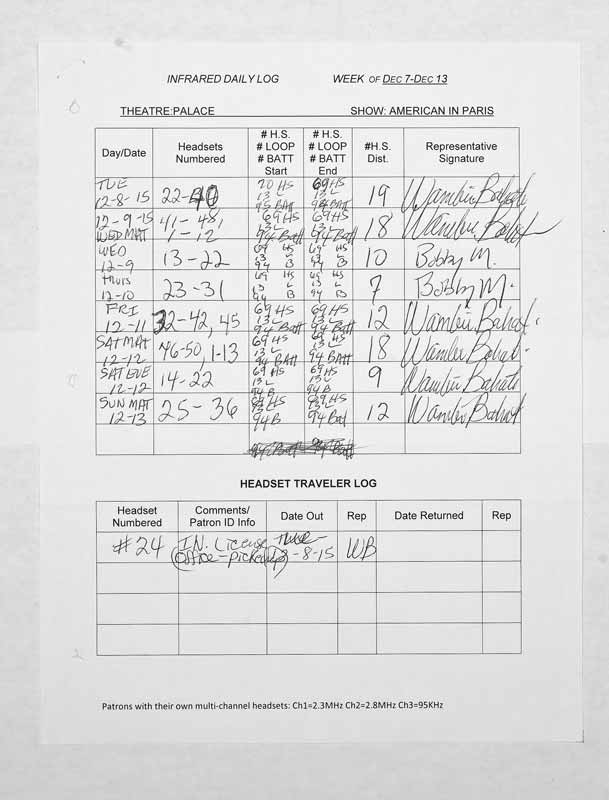 INFRARED DAILY LOG WEEK OF DEC 7-DEC 13
THEATRE:PALACE SHOW: AMERICAN IN PARIS
Day/Date Headsets Numbered # H.S. # LOOP # BATT Start # H.S. # LOOP # BATT End #H.S. Dist. Representative Signature
TUE 12-8-15 22-40 70 HS 13 L 95 BATT 69 HS 13 L 94 BATT 19
12-9-15 WED MAT 41-48, 1-12 69 HS 13 L 94 Batt 69 HS 13 L 94 Batt 18
WED 12-9 13-22 69 HS 13 L 94 B 69 HS 13 L 94 B 10 Bobby M.
THURS 12-10 23-31 69 HS 13 L 94 B 69 HS 13 L 94 B 7 Bobby M.
FRI 12-11 32-42, 45 69 HS 13 L 94 Batt 69 HS 13 L 94 Batt 12
SAT MAT 12-12 46-50, 1-13 69 HS 13 L 94 BATT 69 HS 13 L 94 BATT 18
SAT EVE 12-12 14-22 69 HS 13 L 94 B 69 HS 13 L 94 B 9
SUN MAT 12-13 25-36 69 HS 13 L 94 B 69 HS 13 L 94 Bat 12
HEADSET TRAVELER LOG
Headset Numbered Comments/ Patron ID Info Date Out Rep Date Returned Rep
#24 IN. License (office-pickup) 12-8-15 WB
Patrons with their own multi-channel headsets: Ch1=2.3MHz Ch2=2.8MHz Ch3=95KHz